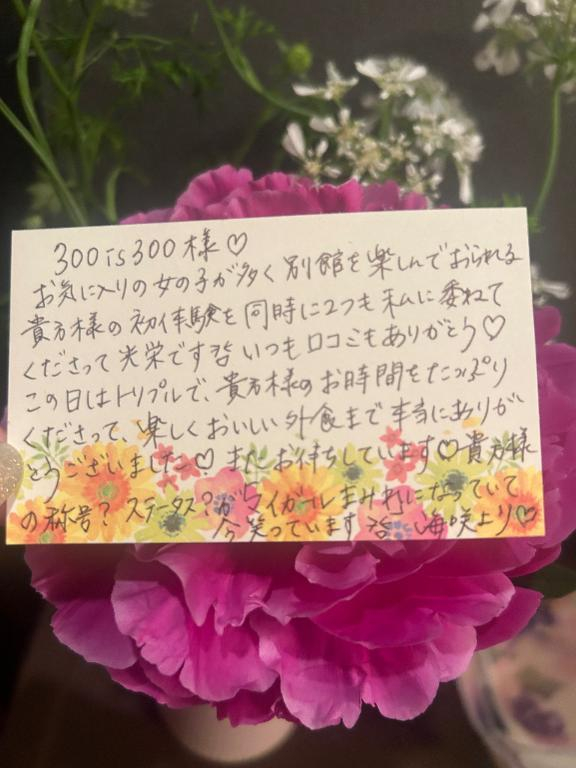 300is300様♡
お気に入りの女の子が多く別館を楽しんでおられる
貴方様の初体験を同時に2つも私に委ねて
くださって光栄です いつも口コミもありがとう♡
この日はトリプルで、貴方様のお時間をたっぷり
くださって、楽しくおいしい外食まで本当にありが
とうございました♡ またお待ちしています♡貴方様
の称号？ステータス？がマイガールまみれになっていて
今笑っています 海咲より♡